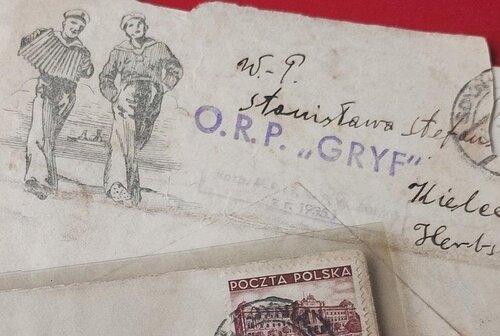 W. P.
Stanisława Stefań
O.R.P. „GRYF"
Kielce
Herbs
A.S.
POCZTA POLSKA